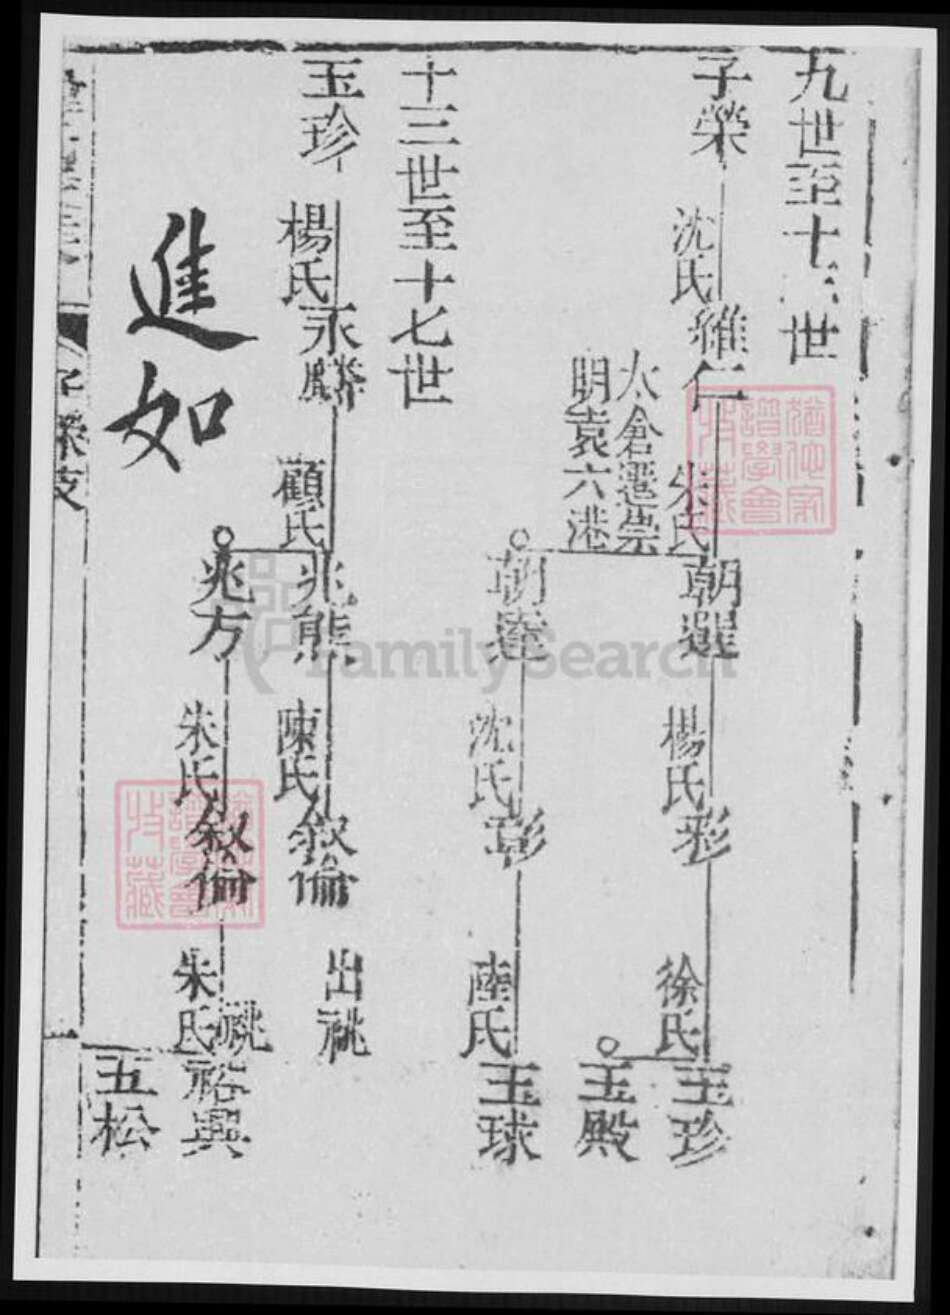 九世至十三世
子榮
沈氏
維仁
朱氏
太倉遷崇
明袁六港
朝選
楊氏
彩
徐氏
玉珍
玉殿
朝逵
沈氏
彰
陸氏
玉球
十三世至十七世
玉珍
楊氏
永麟
顧氏
兆熊
陳氏
敘倫
出祧
兆方
朱氏
敘倫
祧
朱氏
裕興
五松
進如
子榮支
譜學會
收藏
譜學會
收藏
FamilySearch